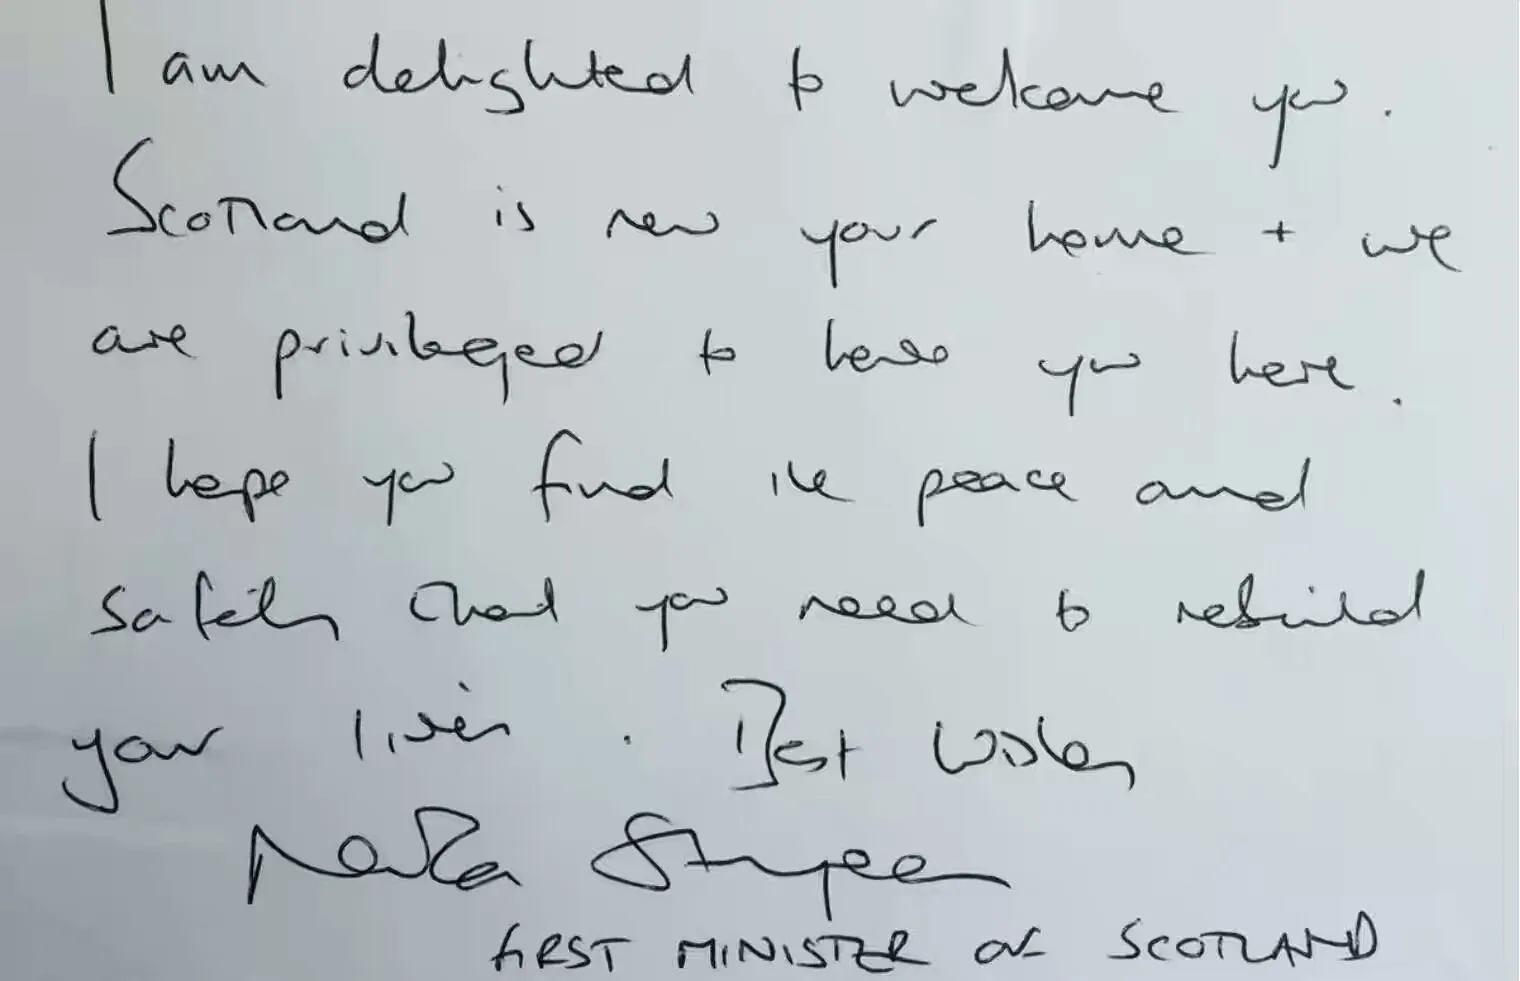 I am delighted to welcome you.
Scotland is now your home + we
are privileged to have you here.
I hope you find the peace and
safety that you need to rebuild
your lives. Best wishes
Nicola Sturgeon
FIRST MINISTER OF SCOTLAND